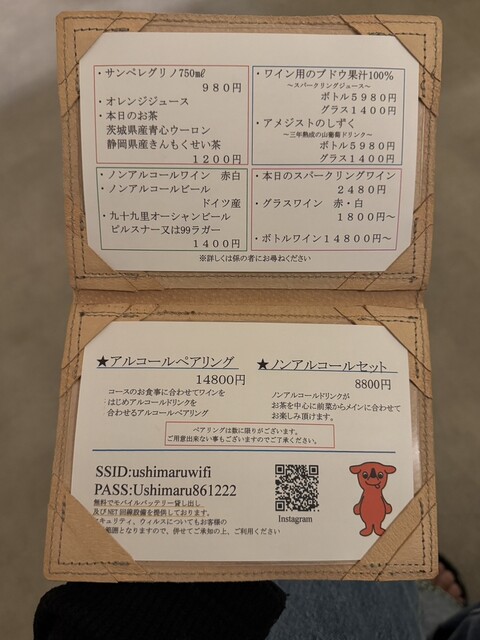 ・サンペレグリノ750㎖
980円
・オレンジジュース
・本日のお茶
茨城県産青心ウーロン
静岡県産きんもくせい茶
1200円
・ワイン用のブドウ果汁100%
～スパークリングジュース～
ボトル5980円
グラス1400円
・アメジストのしずく
～三年熟成の山葡萄ドリンク～
ボトル5980円
グラス1400円
・ノンアルコールワイン 赤白
・ノンアルコールビール
ドイツ産
・九十九里オーシャンビール
ピルスナー又は99ラガー
1400円
・本日のスパークリングワイン
2480円
・グラスワイン 赤・白
1800円～
・ボトルワイン14800円～
※詳しくは係の者にお尋ねください
★アルコールペアリング
14800円
コースのお食事に合わせてワインを
はじめアルコールドリンクを
合わせるアルコールペアリング
★ノンアルコールセット
8800円
ノンアルコールドリンクが
お茶を中心に前菜からメインに合わせて
お楽しみ頂けます。
ペアリングは数に限りがございます。
ご用意出来ない事もございますのでご了承ください。
SSID:ushimaruwifi
PASS:Ushimaru861222
無料でモバイルバッテリー貸し出し
及びNET回線設備を提供しております。
キュリティ、ウィルスについてもお客様の
範囲となりますので、併せてご承知の上、ご利用ください
Instagram